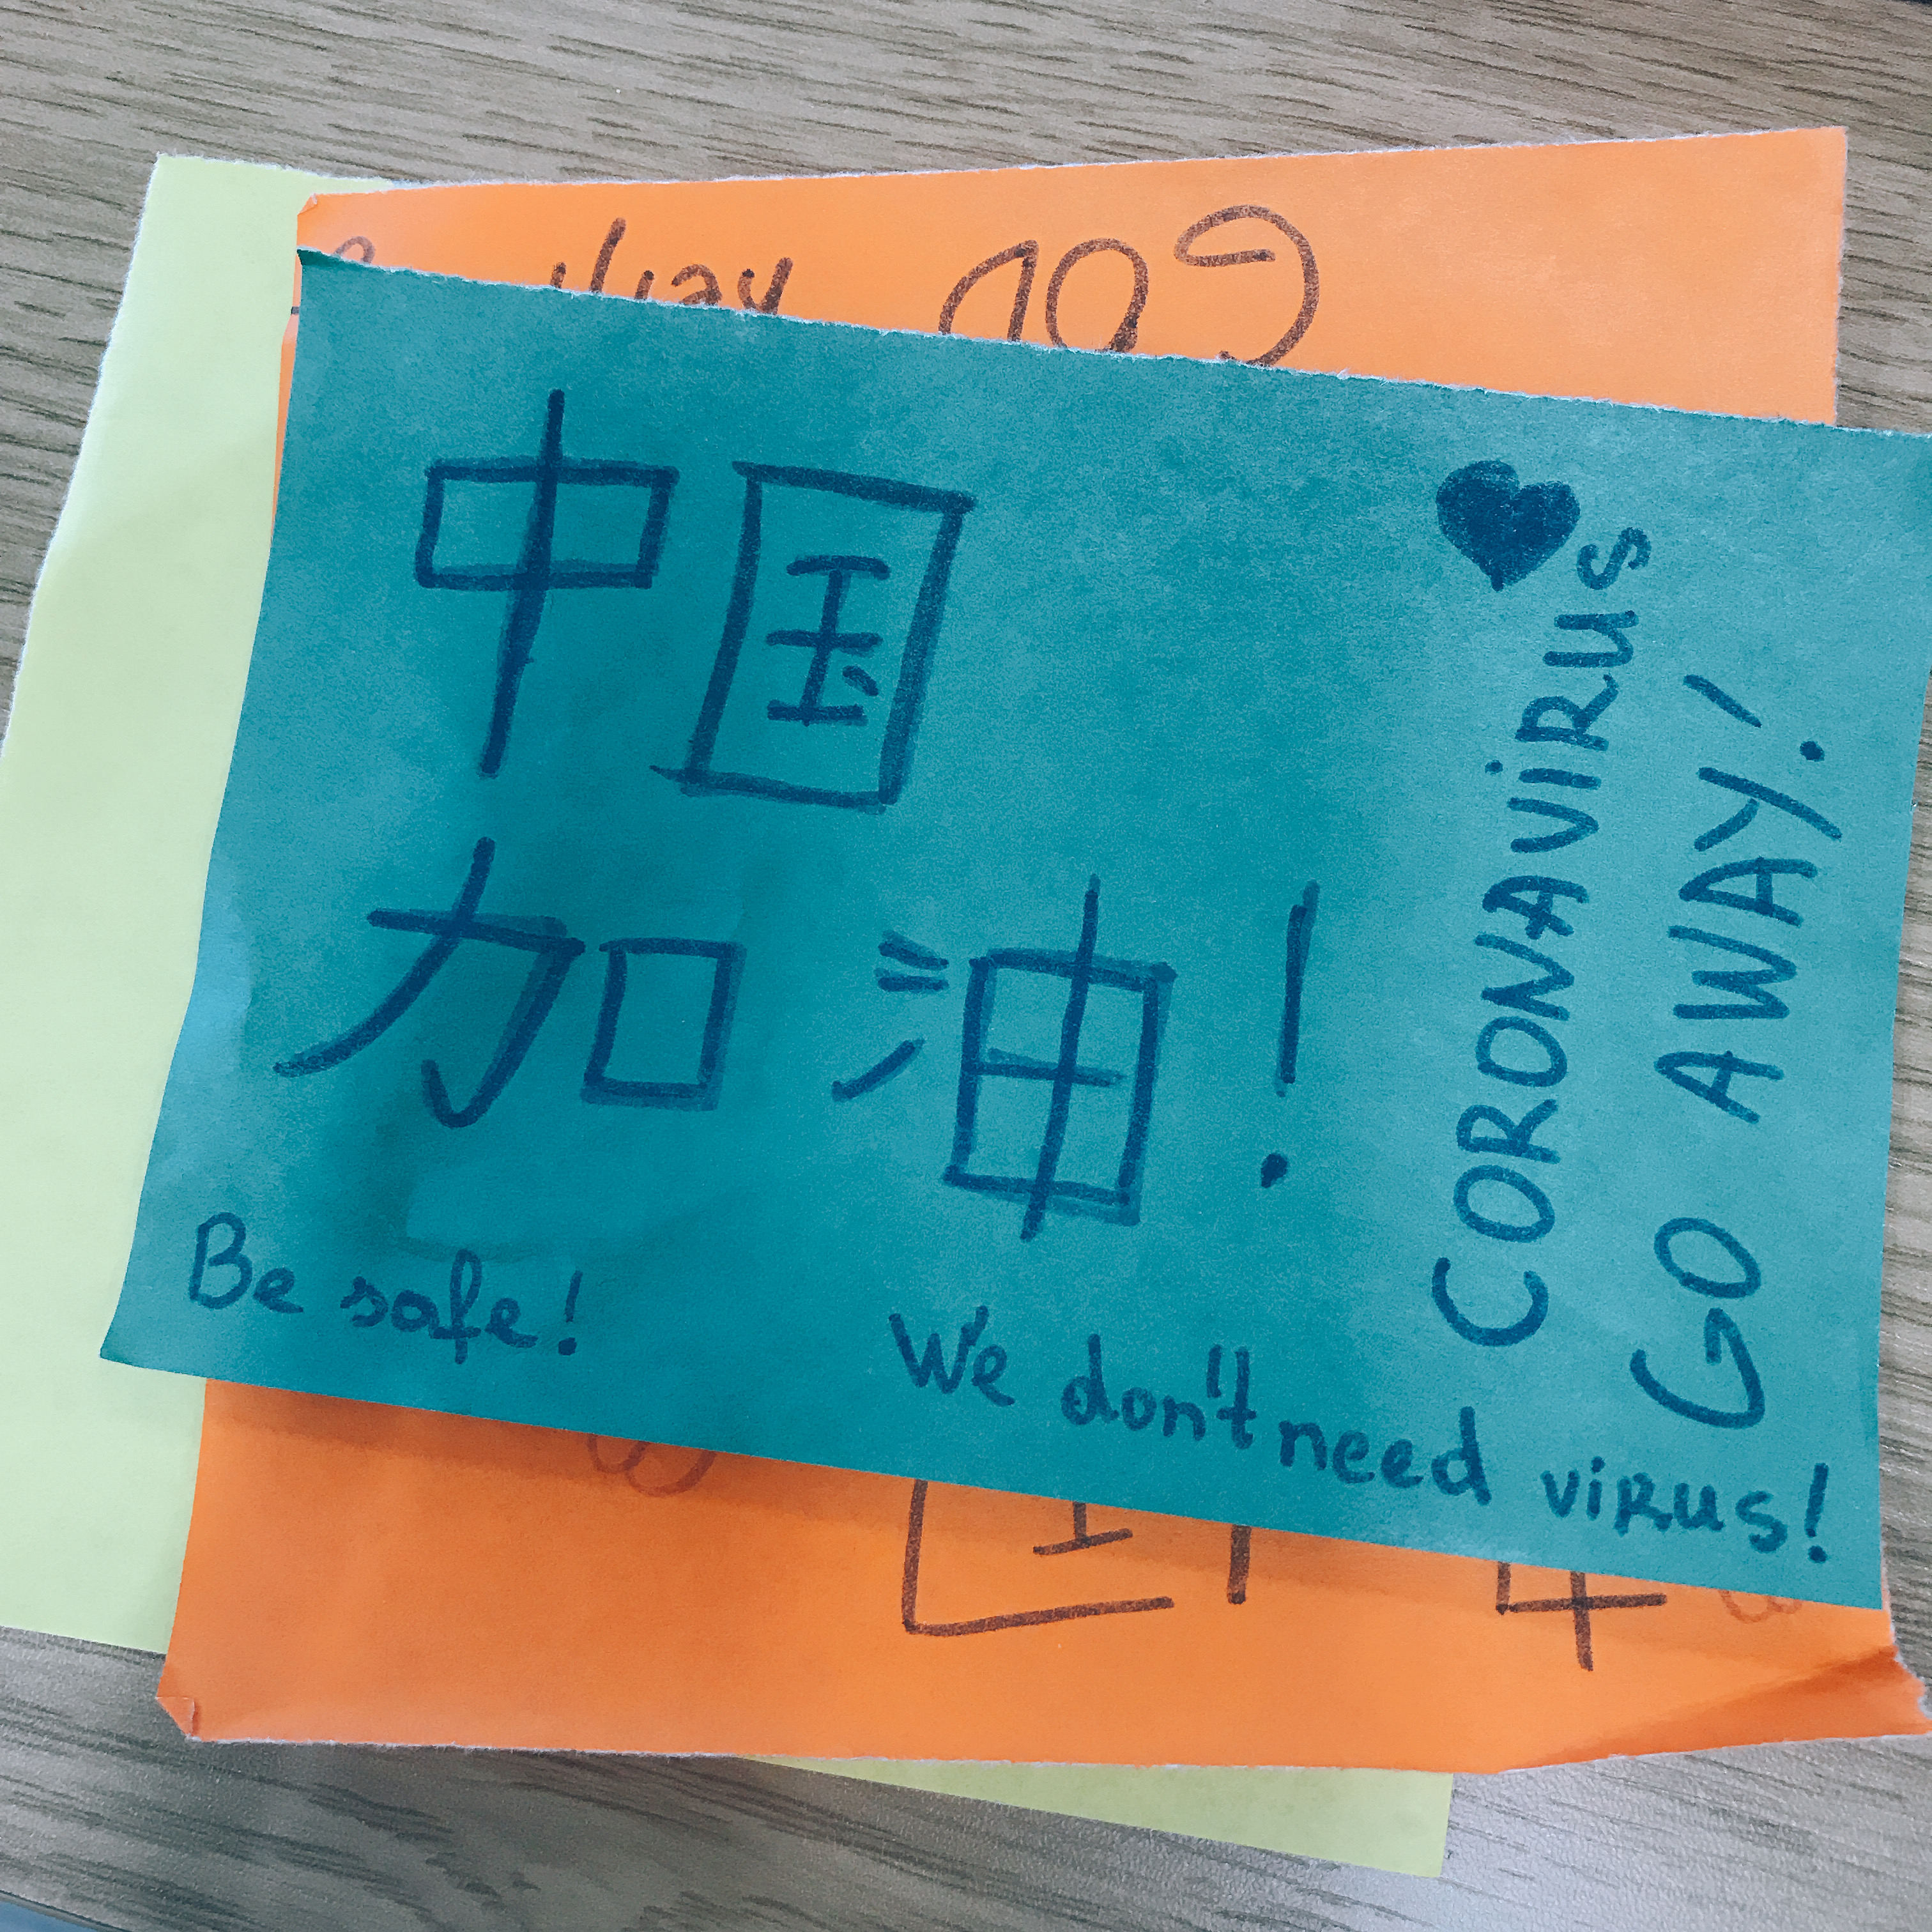 中国
加油!
Be safe!
We don't need virus!
CORONAVIRUS
GO AWAY!